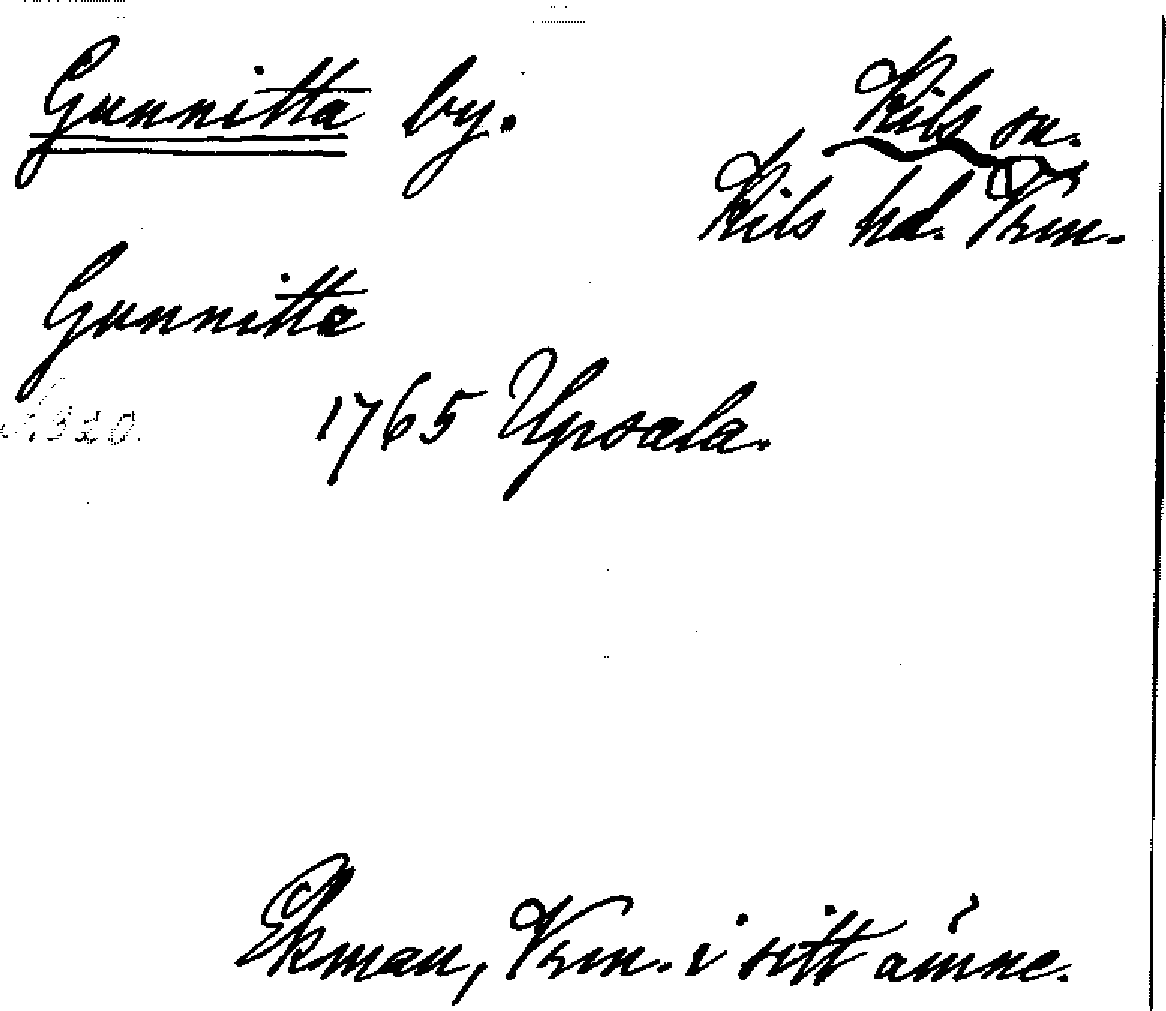 Gunnitta by.
Kils sn.
Kils hd. Vrm.
Gunnitta
s. 320.
1765 Upsala.
Ekman, Vrm. i sitt ämne.